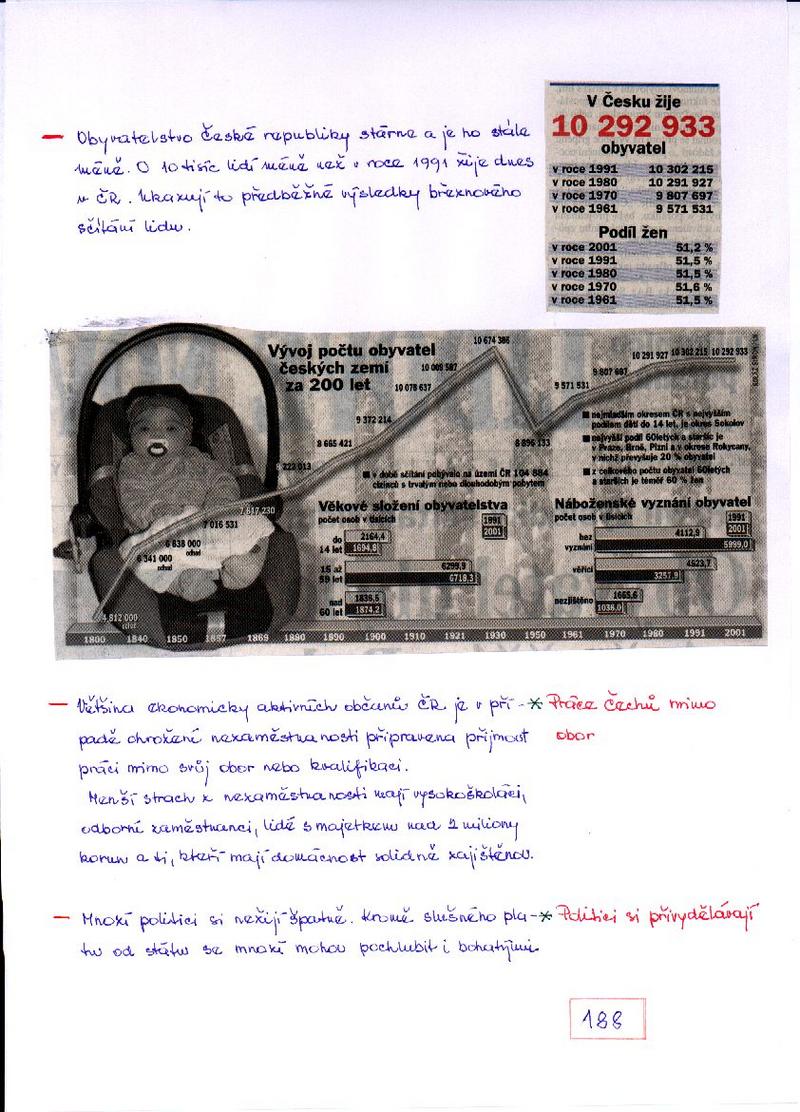 V Česku žije
10 292 933
obyvatel
v roce 1991 10 302 215
v roce 1980 10 291 927
v roce 1970 9 807 697
v roce 1961 9 571 531
Podíl žen
v roce 2001 51,2 %
v roce 1991 51,5 %
v roce 1980 51,5 %
v roce 1970 51,6 %
v roce 1961 51,5 %
– Obyvatelstvo České republiky stárne a je ho stále
méně. O 10 tisíc lidí méně než v roce 1991 žije dnes
v ČR. Ukazují to předběžné výsledky březnového
sčítání lidu.
Vývoj počtu obyvatel
českých zemí
za 200 let
4 812 000
odhad
6 341 000
odhad
6 638 000
odhad
7 016 531
7 617 230
8 222 013
8 665 421
9 372 214
10 078 637
10 009 587
10 674 386
8 896 133
9 571 531
9 807 697
10 291 927
10 302 215
10 292 933
■ v době sčítání pobývalo na území ČR 104 884
cizinců s trvalým nebo dlouhodobým pobytem
■ nejmladším okresem ČR s nejvyšším
podílem dětí do 14 let, je okres Sokolov
■ nejvyšší podíl 60letých a starších je
v Praze, Brně, Plzni a v okrese Rokycany,
v nichž převyšuje 20 % obyvatel
■ z celkového počtu obyvatel 60letých
a starších je téměř 60 % žen
Věkové složení obyvatelstva
počet osob v tisících
1991
2001
do
14 let
2164,4
1694,8
15 až
59 let
6299,9
6718,3
nad
60 let
1838,5
1874,2
Náboženské vyznání obyvatel
počet osob v tisících
1991
2001
bez
vyznání
4112,9
5999,0
věřící
4523,7
3257,9
nezjištěno
1665,6
1036,0
1800 1840 1850 1857 1869 1880 1890 1900 1910 1921 1930 1950 1961 1970 1980 1991 2001
– Většina ekonomicky aktivních občanů ČR je v pří-
padě ohrožení nezaměstnaností připravena přijmout
práci mimo svůj obor nebo kvalifikaci.
Menší strach z nezaměstnanosti mají vysokoškoláci,
odborní zaměstnanci, lidé s majetkem nad 2 miliony
korun a ti, kteří mají domácnost solidně zajištěnou.
* Práce Čechů mimo
obor
– Mnozí politici si nežijí špatně. Kromě slušného pla-
tu od státu se mnozí mohou pochlubit i bohatými
* Politici si přivydělávají
188